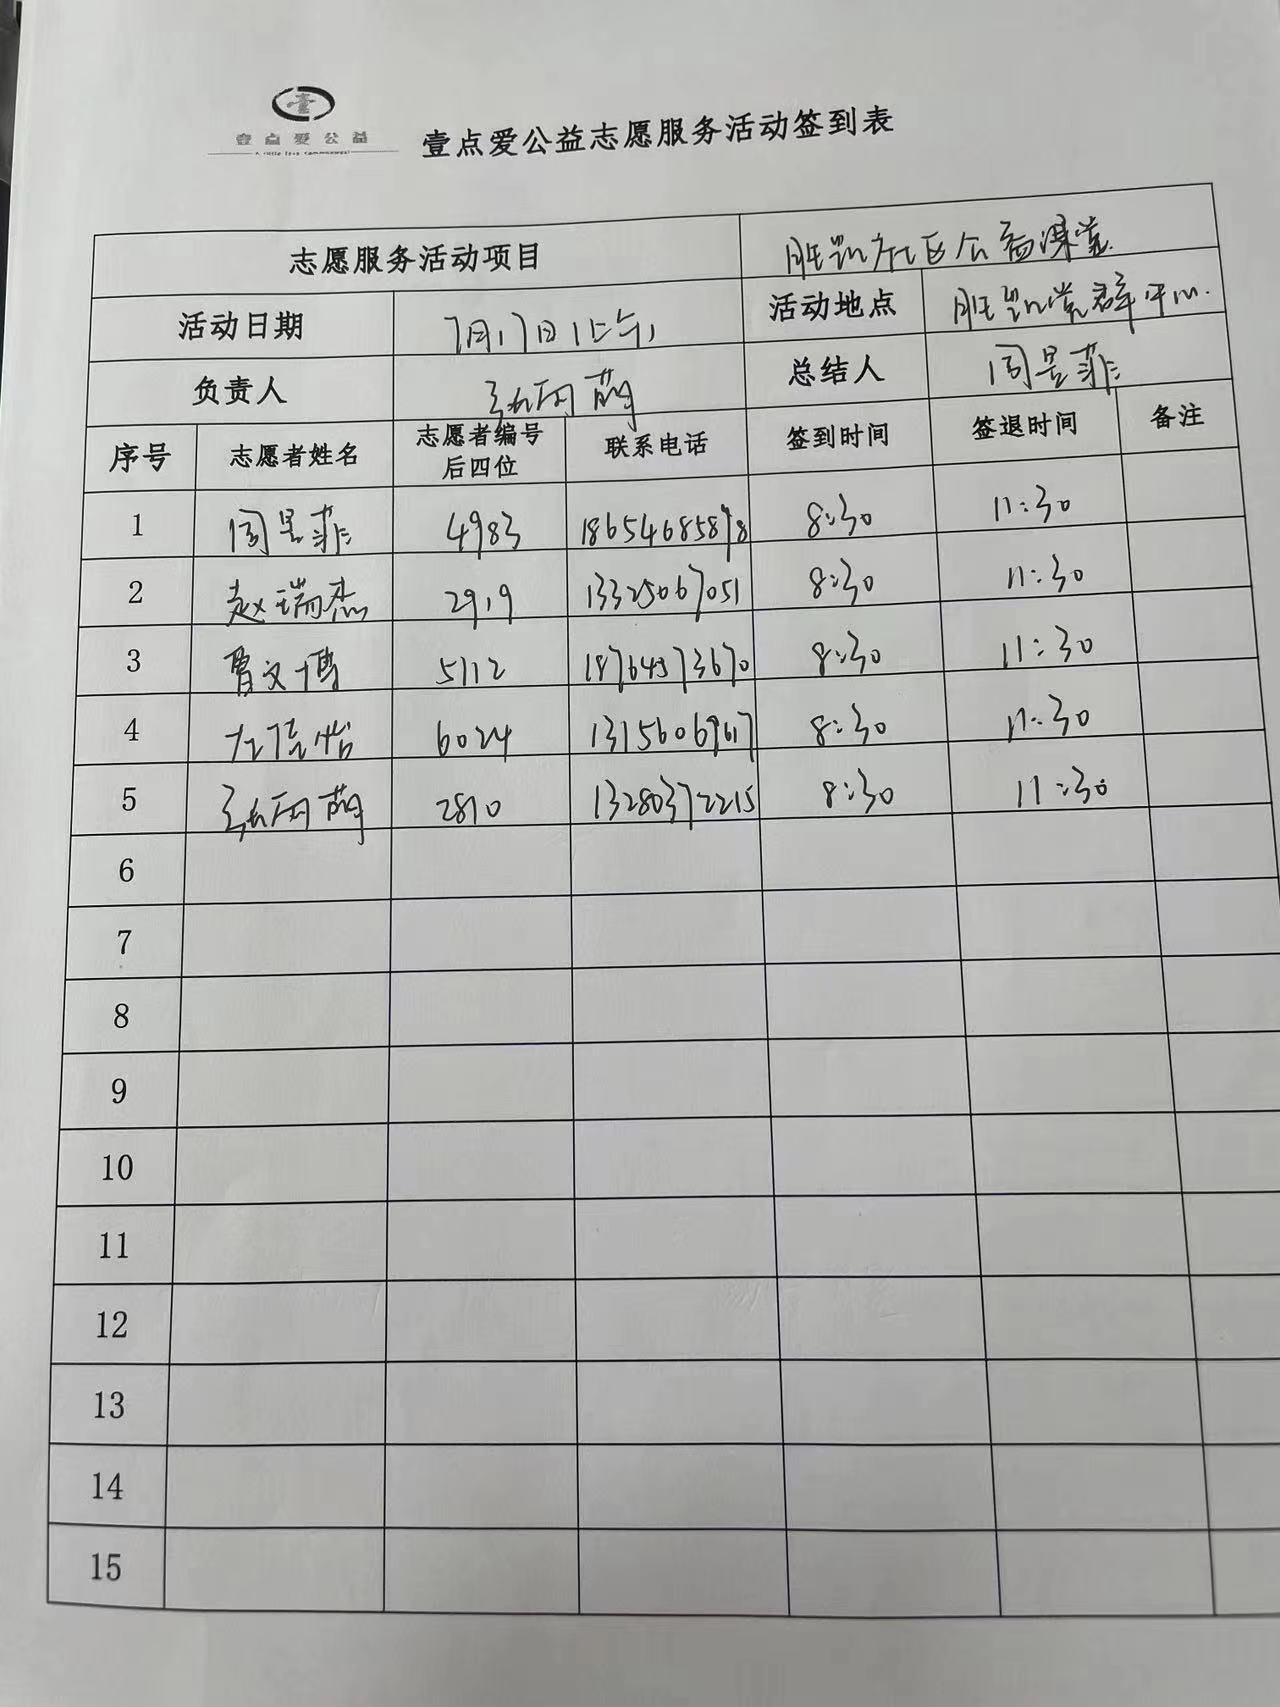 壹点爱公益
壹点爱公益志愿服务活动签到表
志愿服务活动项目 胜凯社区公益课堂
活动日期 7月17日上午 活动地点 胜凯党群中心
负责人 张雨萌 总结人 周昱菲
序号 志愿者姓名 志愿者编号后四位 联系电话 签到时间 签退时间 备注
1 周昱菲 4983 18654685898 8:30 11:30
2 赵瑞杰 2919 13325067051 8:30 11:30
3 曹文博 5112 8:30 11:30
4 左佳怡 6024 8:30 11:30
5 张雨萌 2810 13280372215 8:30 11:30
6
7
8
9
10
11
12
13
14
15